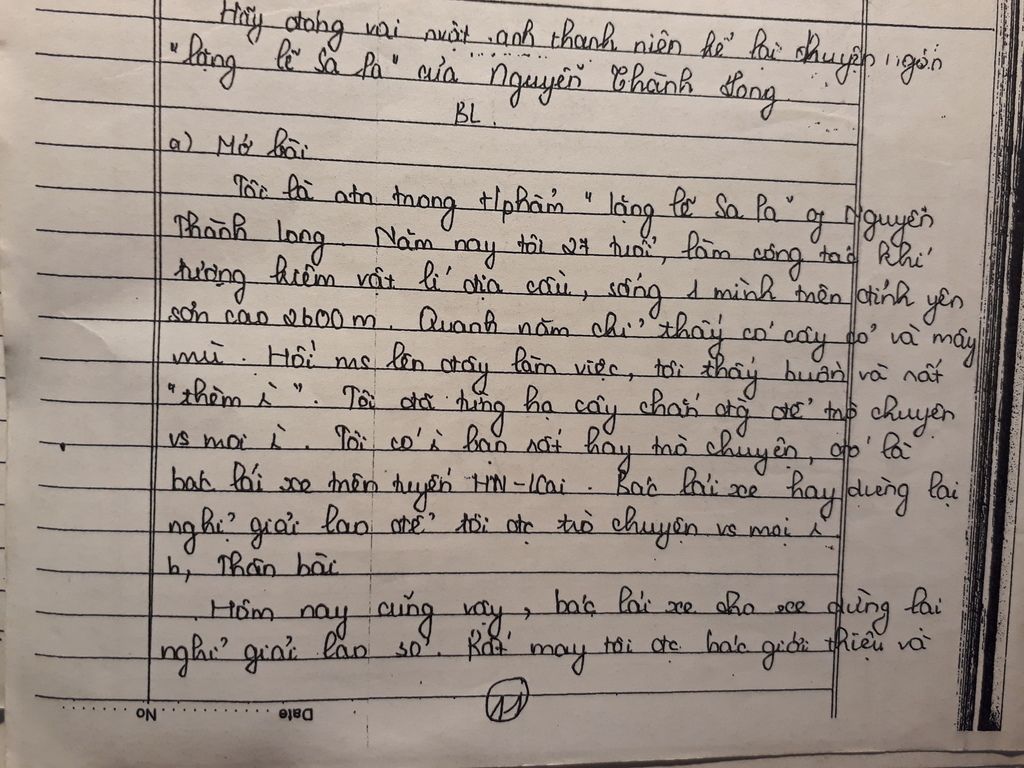 Hãy đóng vai nvật anh thanh niên kể lại chuyện ngắn
"lặng lẽ Sa Pa" của Nguyễn Thành Long
BL.
a) Mở bài
Tôi là atn trong t/phẩm "lặng lẽ Sa Pa" of Nguyễn
Thành Long. Năm nay tôi 27 tuổi, làm công tác khí
tượng kiêm vật lí địa cầu, sống 1 mình trên đỉnh yên
sơn cao 2600m. Quanh năm chỉ thấy cỏ cây và mây
mù. Hồi ms lên đây làm việc, tôi thấy buồn và rất
"thèm ì". Tôi đã từng hạ cây chắn đg để trò chuyện
vs mọi ì. Tôi có ì bạn rất hay trò chuyện, đó là
bác lái xe trên tuyến HN-LCai. Bác lái xe hay dừng lại
nghỉ giải lao để tôi đc trò chuyện vs mọi ì
b, Thân bài
Hôm nay cũng vậy, bác lái xe cho xe dừng lại
nghỉ giải lao 30'. Rất may tôi đc bác giới thiệu và
No Date